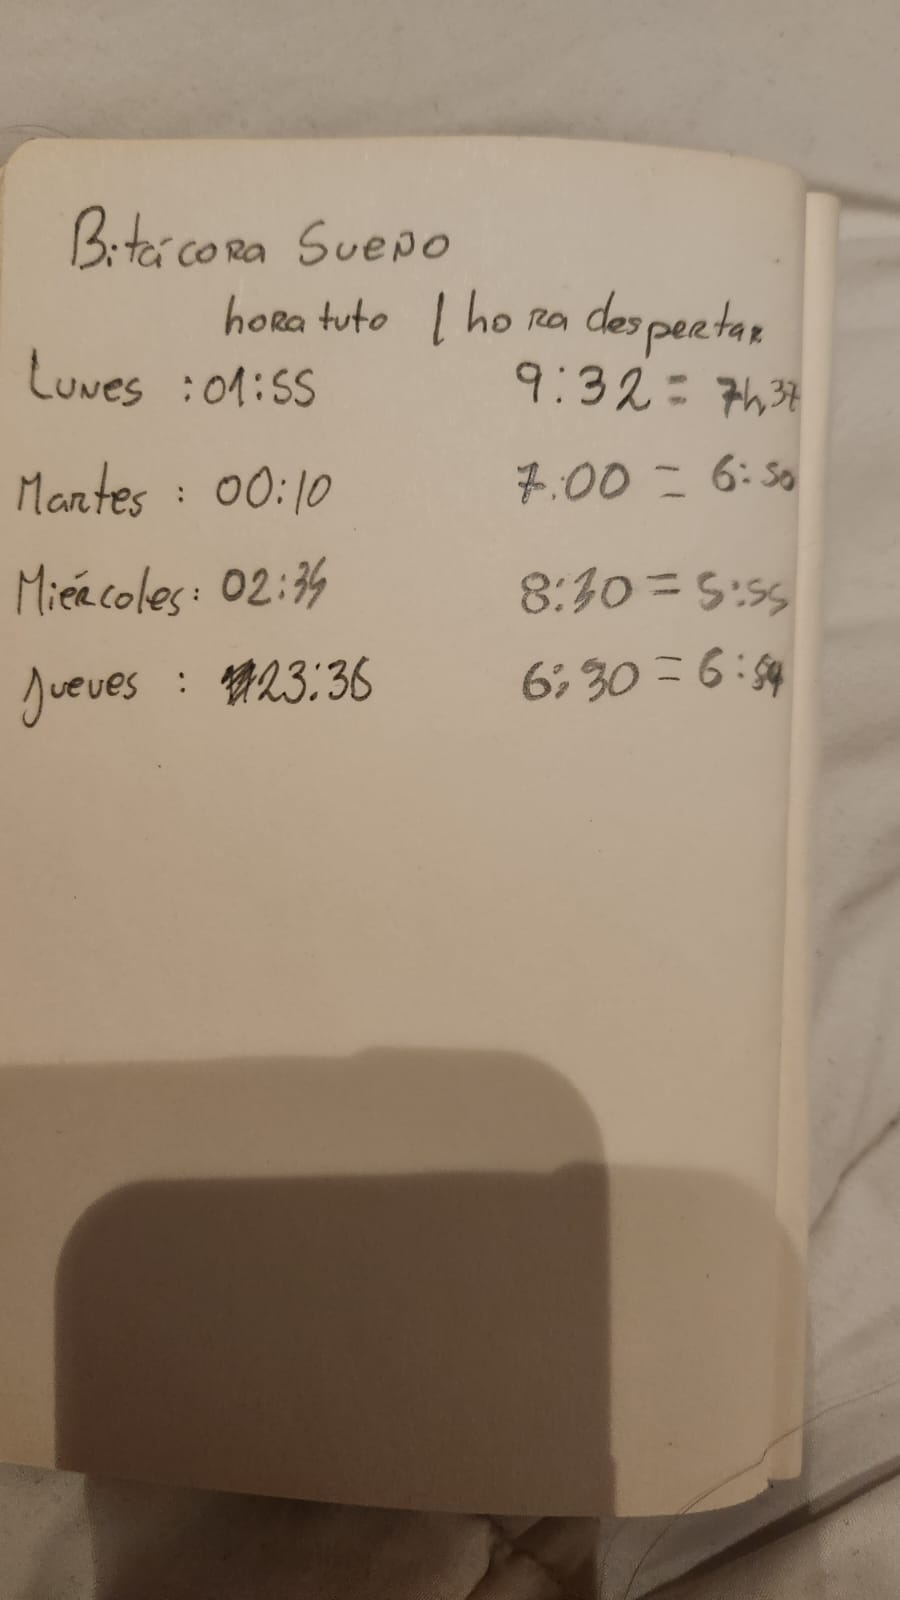 Bitácora Sueño
hora tuto / hora despertar
Lunes : 01:55 9:32 = 7h,37
Martes : 00:10 7:00 = 6:50
Miércoles : 02:35 8:30 = 5:55
Jueves : 23:36 6:30 = 6:54